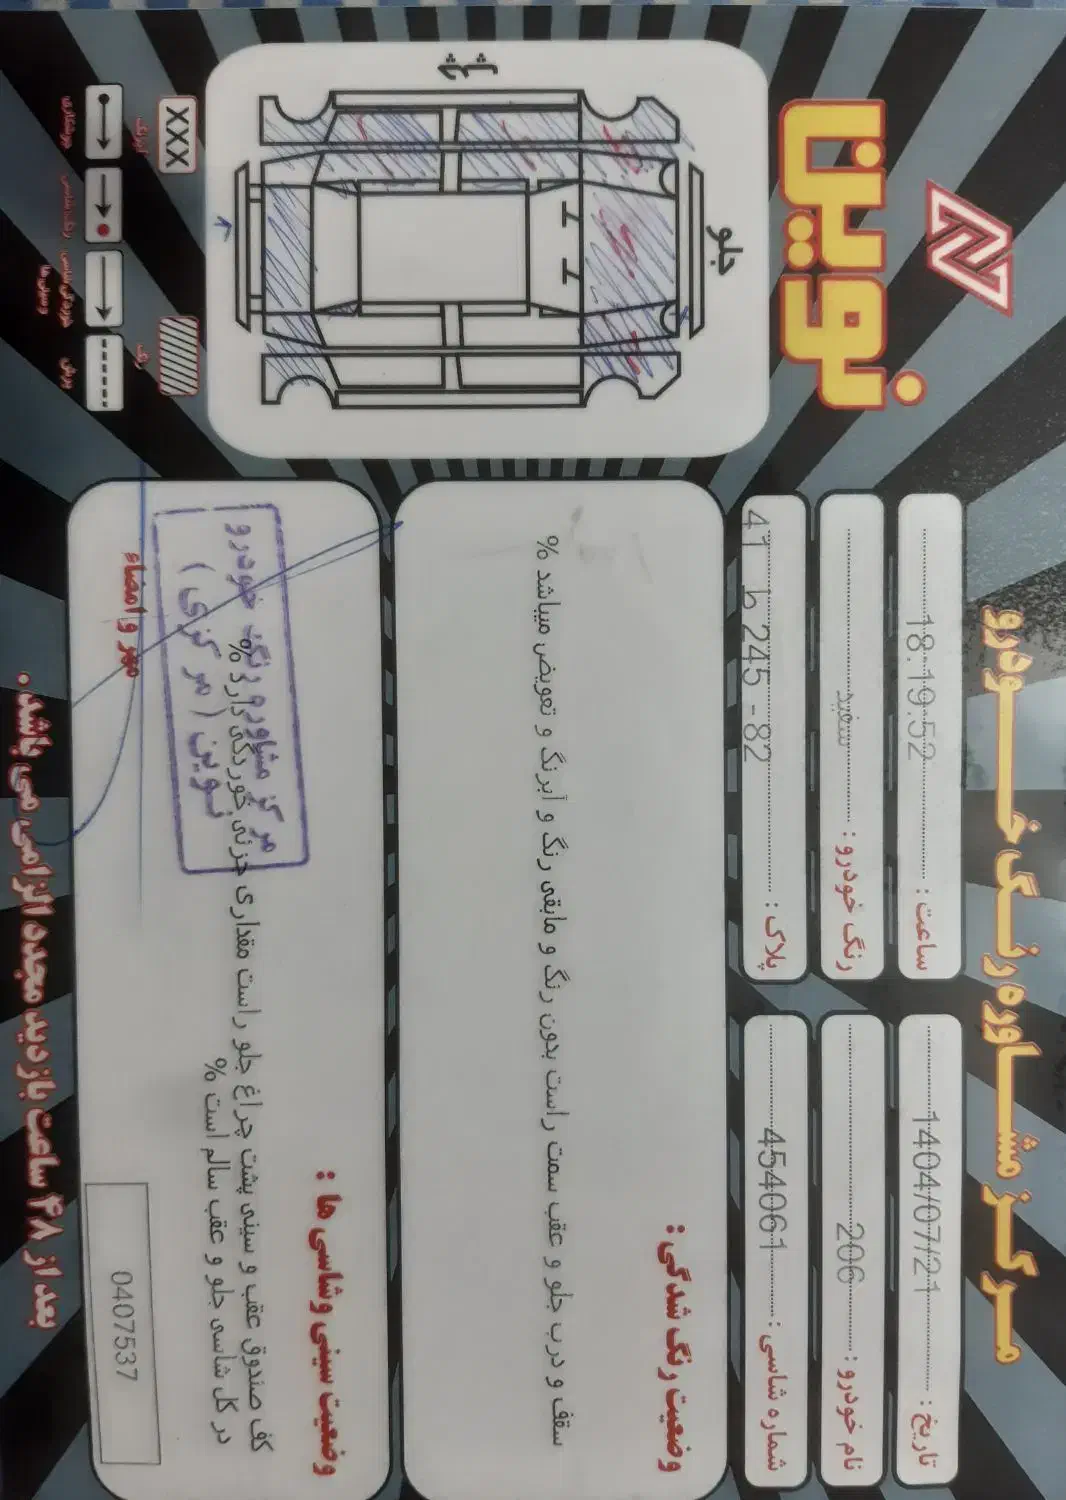 مرکز مشاوره رنگ خودرو
نوین
تاریخ : 1404/07/21
ساعت : 18:19:52
نام خودرو : 206
رنگ خودرو : سفید
شماره شاسی : 454061
پلاک : 41 b 245 - 82
جلو
وضعیت رنگ شدگی:
سقف و درب جلو و عقب سمت راست بدون رنگ و مابقی رنگ و آبرنگ و تعویض میباشد %
وضعیت سینی و شاسی ها :
کف صندوق عقب و سینی پشت چراغ جلو راست مقداری جزئی خوردگی دارد %
در کل شاسی جلو و عقب سالم است %
مرکز مشاوره رنگ خودرو
نوین ( مرکزی )
مهر و امضاء
0407537
XXX
آبرنگ
رنگ
جوشکاری
برش
بعد از ۴۸ ساعت بازدید مجدد الزامی می باشد .